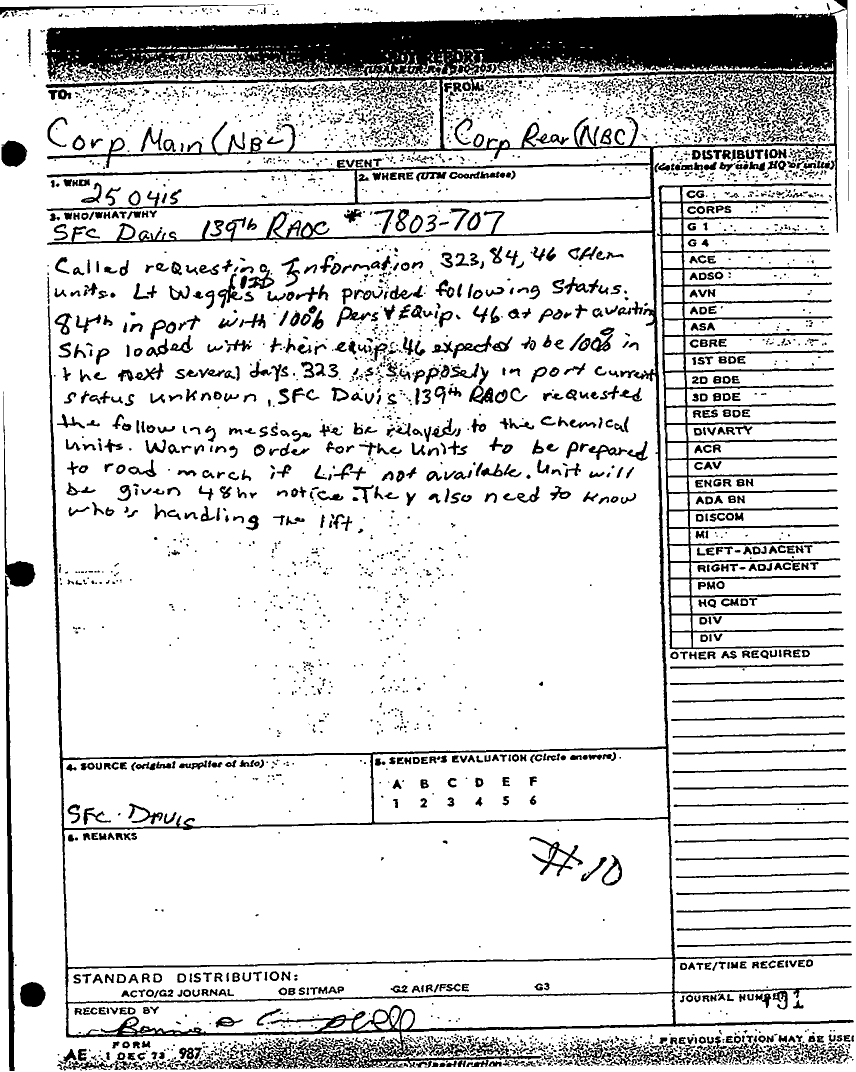 SPOT REPORT
TO:
FROM:
Corp Main (NBC)
Corp Rear (NBC)
EVENT
DISTRIBUTION
(determined by using HQ or units)
1. WHEN
250415
2. WHERE (UTM Coordinates)
3. WHO/WHAT/WHY
SFC Davis 139th RAOC * 7803-707
Called requesting Information 323, 84, 46 CHem
units. Lt worth provided following Status.
84th in port with 100% Pers & EQuip. 46 at port awaiting
Ship loaded with their equip. 46 expected to be 100% in
the next several days. 323 is supposely in port current
status unknown. SFC Davis 139th RAOC requested
the following message to be relayed, to the Chemical
units. Warning Order for The Units to be prepared
to road march if Lift not available. Unit will
be given 48hr notice. They also need to know
who's handling The lift.
CG
CORPS
G 1
G 4
ACE
ADSO
AVN
ADE
ASA
CBRE
1ST BDE
2D BDE
3D BDE
RES BDE
DIVARTY
ACR
CAV
ENGR BN
ADA BN
DISCOM
MI
LEFT-ADJACENT
RIGHT-ADJACENT
PMO
HQ CMDT
DIV
DIV
OTHER AS REQUIRED
4. SOURCE (original supplier of info)
SFC. DAVIS
5. SENDER'S EVALUATION (Circle answers)
A B C D E F
1 2 3 4 5 6
6. REMARKS
#10
STANDARD DISTRIBUTION:
ACTO/G2 JOURNAL OB SITMAP G2 AIR/FSCE G3
DATE/TIME RECEIVED
JOURNAL NUMBER
RECEIVED BY
Campbell
AE FORM 1 DEC 73 987
PREVIOUS EDITION MAY BE USED
Classification